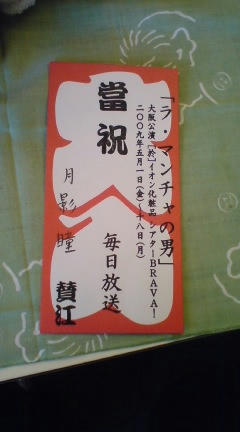 「ラ・マンチャの男」
大阪公演［於］イオン化粧品 シアターBRAVA！
二〇〇九年五月一日(金)〜十八日(月)
當祝
毎日放送
月影瞳
賛江